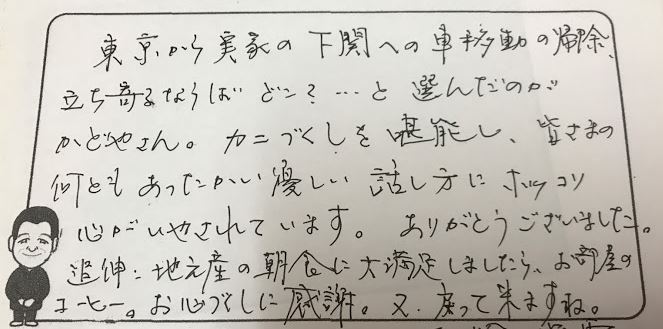 東京から実家の下関への車移動の帰除、
立ち寄るならばどこ?…と選んだのが
かどやさん。カニづくしを堪能し、皆さまの
何ともあったかい優しい話し方にホッコリ
心がいやされています。ありがとうございました。
追伸:地元産の朝食に大満足しましたら、お部屋の
コーヒー。お心づくしに感謝。又、戻って来ますね。